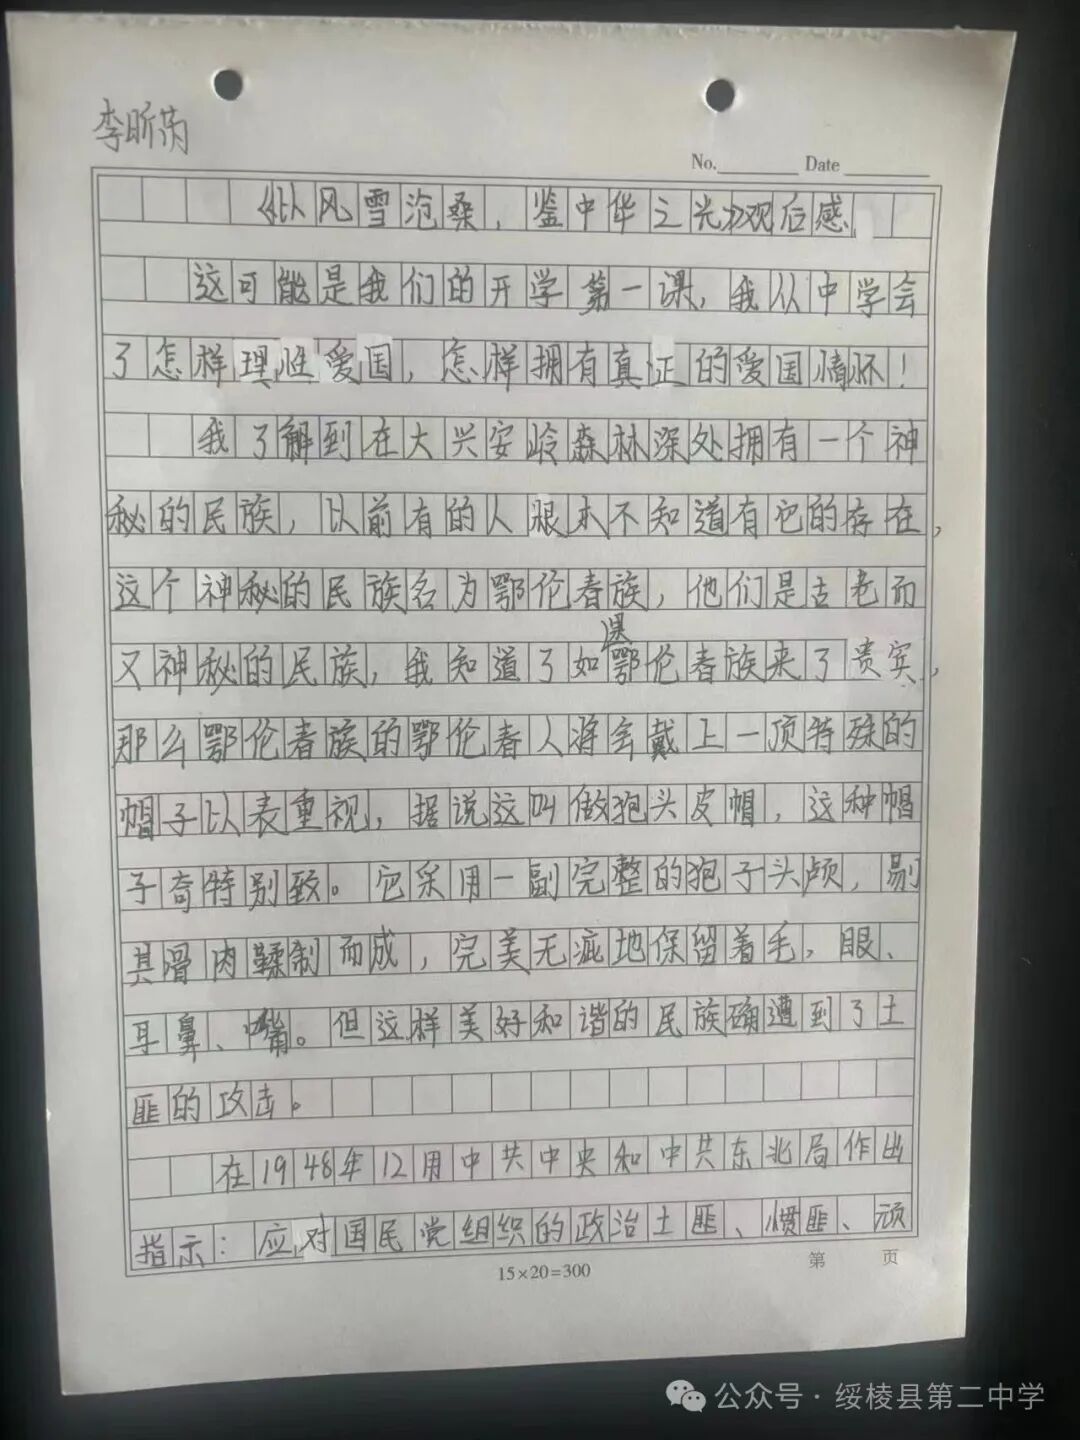 李昕芮
No. Date
《从风雪沧桑，鉴中华之光》观后感
这可能是我们的开学第一课，我从中学会
了怎样理性爱国，怎样拥有真正的爱国情怀！
我了解到在大兴安岭森林深处拥有一个神
秘的民族，以前有的人根本不知道有它的存在，
这个神秘的民族名为鄂伦春族，他们是古老而
又神秘的民族，我知道了如果鄂伦春族来了贵宾，
那么鄂伦春族的鄂伦春人将会戴上一顶特殊的
帽子以表重视，据说这叫做狍头皮帽，这种帽
子奇特别致。它采用一副完整的狍子头颅，剔
其骨肉鞣制而成，完美无疵地保留着毛，眼、
耳鼻、嘴。但这样美好和谐的民族确遭到了土
匪的攻击。
在1948年12用中共中央和中共东北局作出
指示：应对国民党组织的政治土匪、惯匪、顽
15×20=300
第 页
公众号·绥棱县第二中学